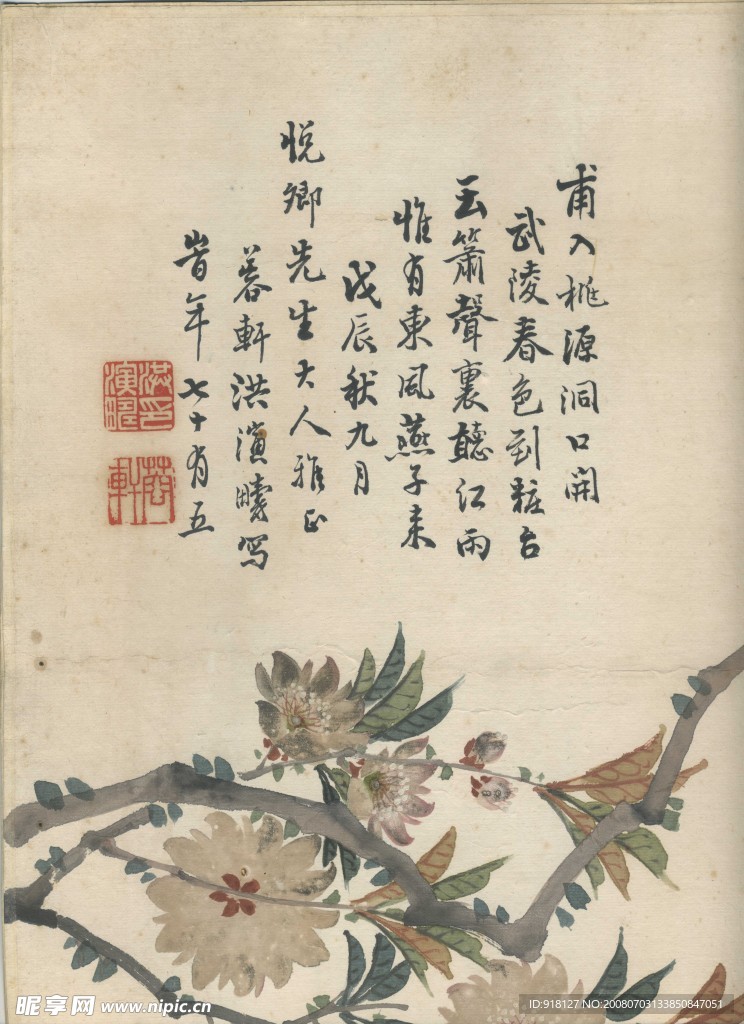 甫入桃源洞口開
武陵春色到粧台
玉簫聲裏聽江雨
惟有東風燕子来
戊辰秋九月
悦卿先生大人雅正
蓉軒洪演疇写
旹年七十有五
洪印演疇
蓉軒
昵享网 www.nipic.cn
ID:918127 NO:20080703133850847051